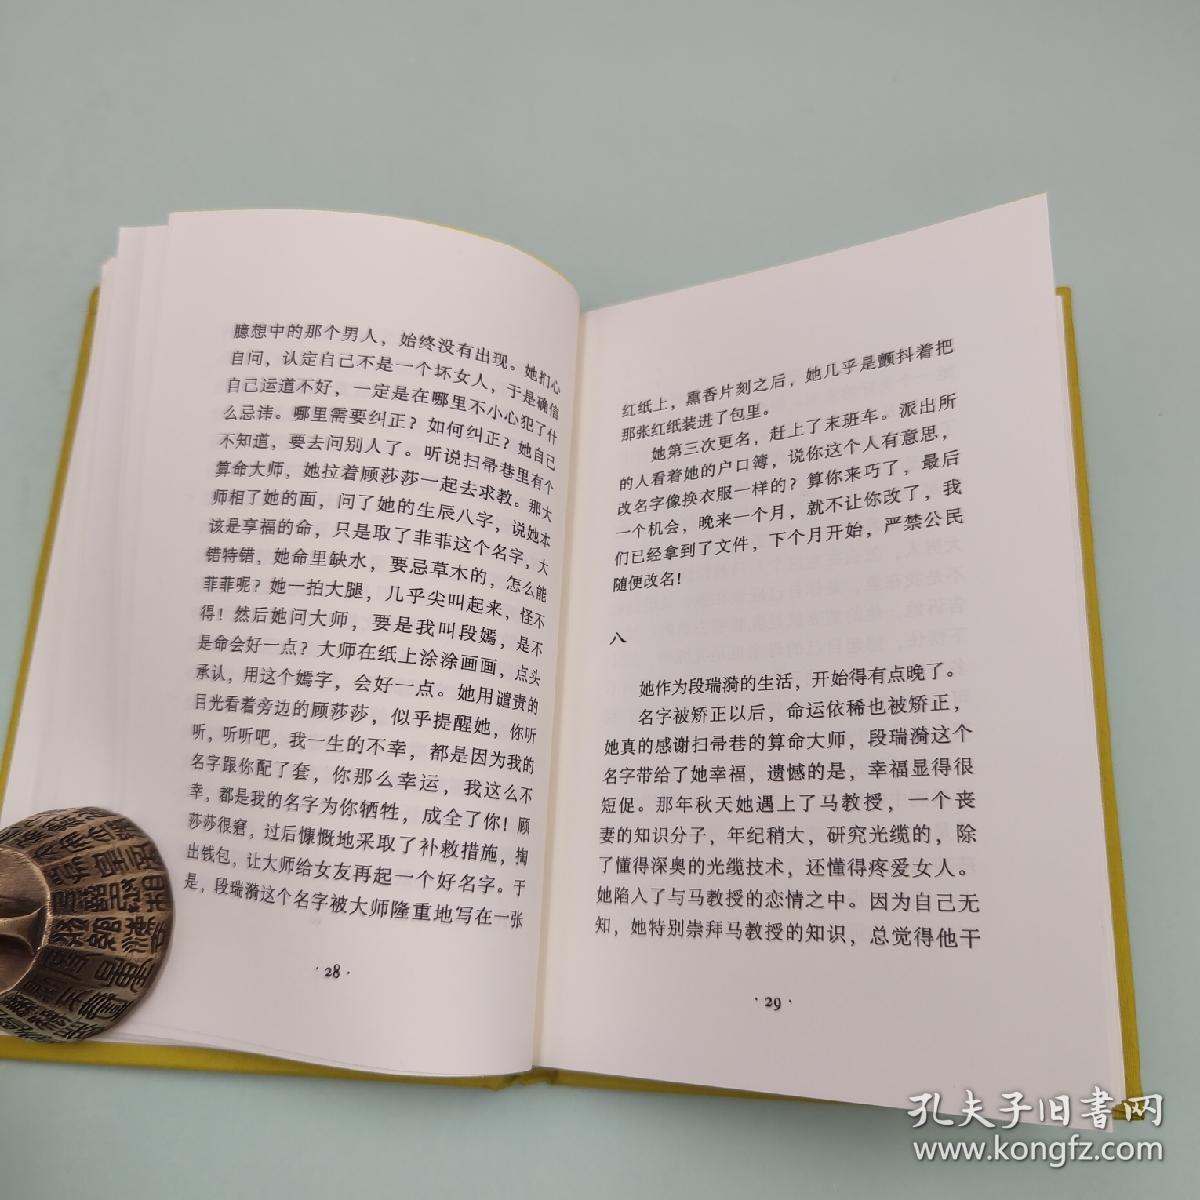 臆想中的那个男人，始终没有出现。她扪心
自问，认定自己不是一个坏女人，于是确信
自己运道不好，一定是在哪里不小心犯了什
么忌讳。哪里需要纠正？如何纠正？她自己
不知道，要去问别人了。听说扫帚巷里有个
算命大师，她拉着顾莎莎一起去求教。那大
师相了她的面，问了她的生辰八字，说她本
该是享福的命，只是取了菲菲这个名字，大
错特错，她命里缺水，要忌草木的，怎么能
菲菲呢？她一拍大腿，几乎尖叫起来，怪不
得！然后她问大师，要是我叫段嫣，是不
是命会好一点？大师在纸上涂涂画画，点头
承认，用这个嫣字，会好一点。她用谴责的
目光看着旁边的顾莎莎，似乎提醒她，你听
听，听听吧，我一生的不幸，都是因为我的
名字跟你配了套，你那么幸运，我这么不
幸，都是我的名字为你牺牲，成全了你！顾
莎莎很窘，过后慷慨地采取了补救措施，掏
出钱包，让大师给女友再起一个好名字。于
是，段瑞漪这个名字被大师隆重地写在一张
·28·
红纸上，熏香片刻之后，她几乎是颤抖着把
那张红纸装进了包里。
她第三次更名，赶上了末班车。派出所
的人看着她的户口簿，说你这个人有意思，
改名字像换衣服一样的？算你来巧了，最后
一个机会，晚来一个月，就不让你改了，我
们已经拿到了文件，下个月开始，严禁公民
随便改名！
八
她作为段瑞漪的生活，开始得有点晚了。
名字被矫正以后，命运依稀也被矫正，
她真的感谢扫帚巷的算命大师，段瑞漪这个
名字带给了她幸福，遗憾的是，幸福显得很
短促。那年秋天她遇上了马教授，一个丧
妻的知识分子，年纪稍大，研究光缆的，除
了懂得深奥的光缆技术，还懂得疼爱女人。
她陷入了与马教授的恋情之中。因为自己无
知，她特别崇拜马教授的知识，总觉得他干
·29·
孔夫子旧书网
www.kongfz.com